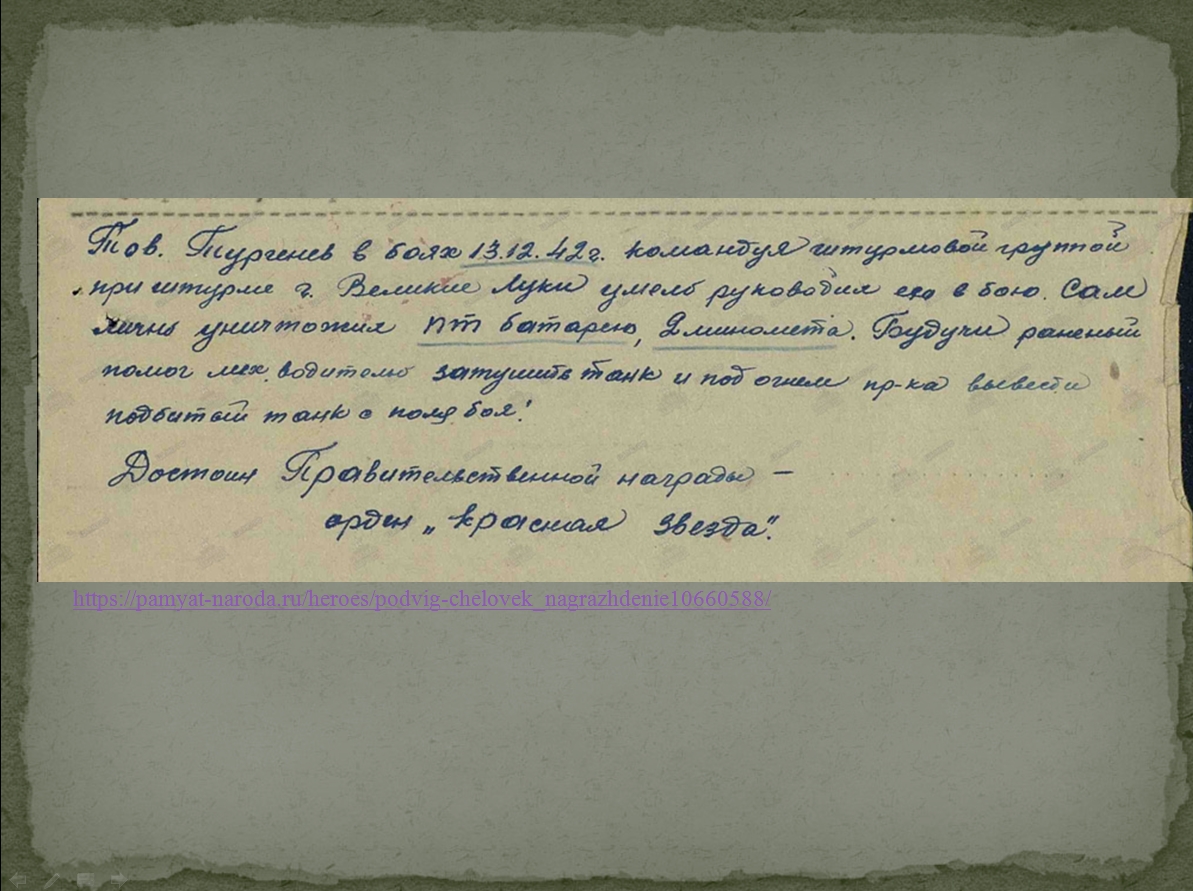 Тов. Тургенев в боях 13.12.42г. командуя штурмовой группой
при штурме г. Великие Луки умело руководил ею в бою. Сам
лично уничтожил ПТ батарею, 2 миномета. Будучи раненый
помог мех. водителю затушить танк и под огнем пр-ка вывести
подбитый танк с поля боя.
Достоин Правительственной награды –
орден „Красная Звезда".
https://pamyat-naroda.ru/heroes/podvig-chelovek_nagrazhdenie10660588/